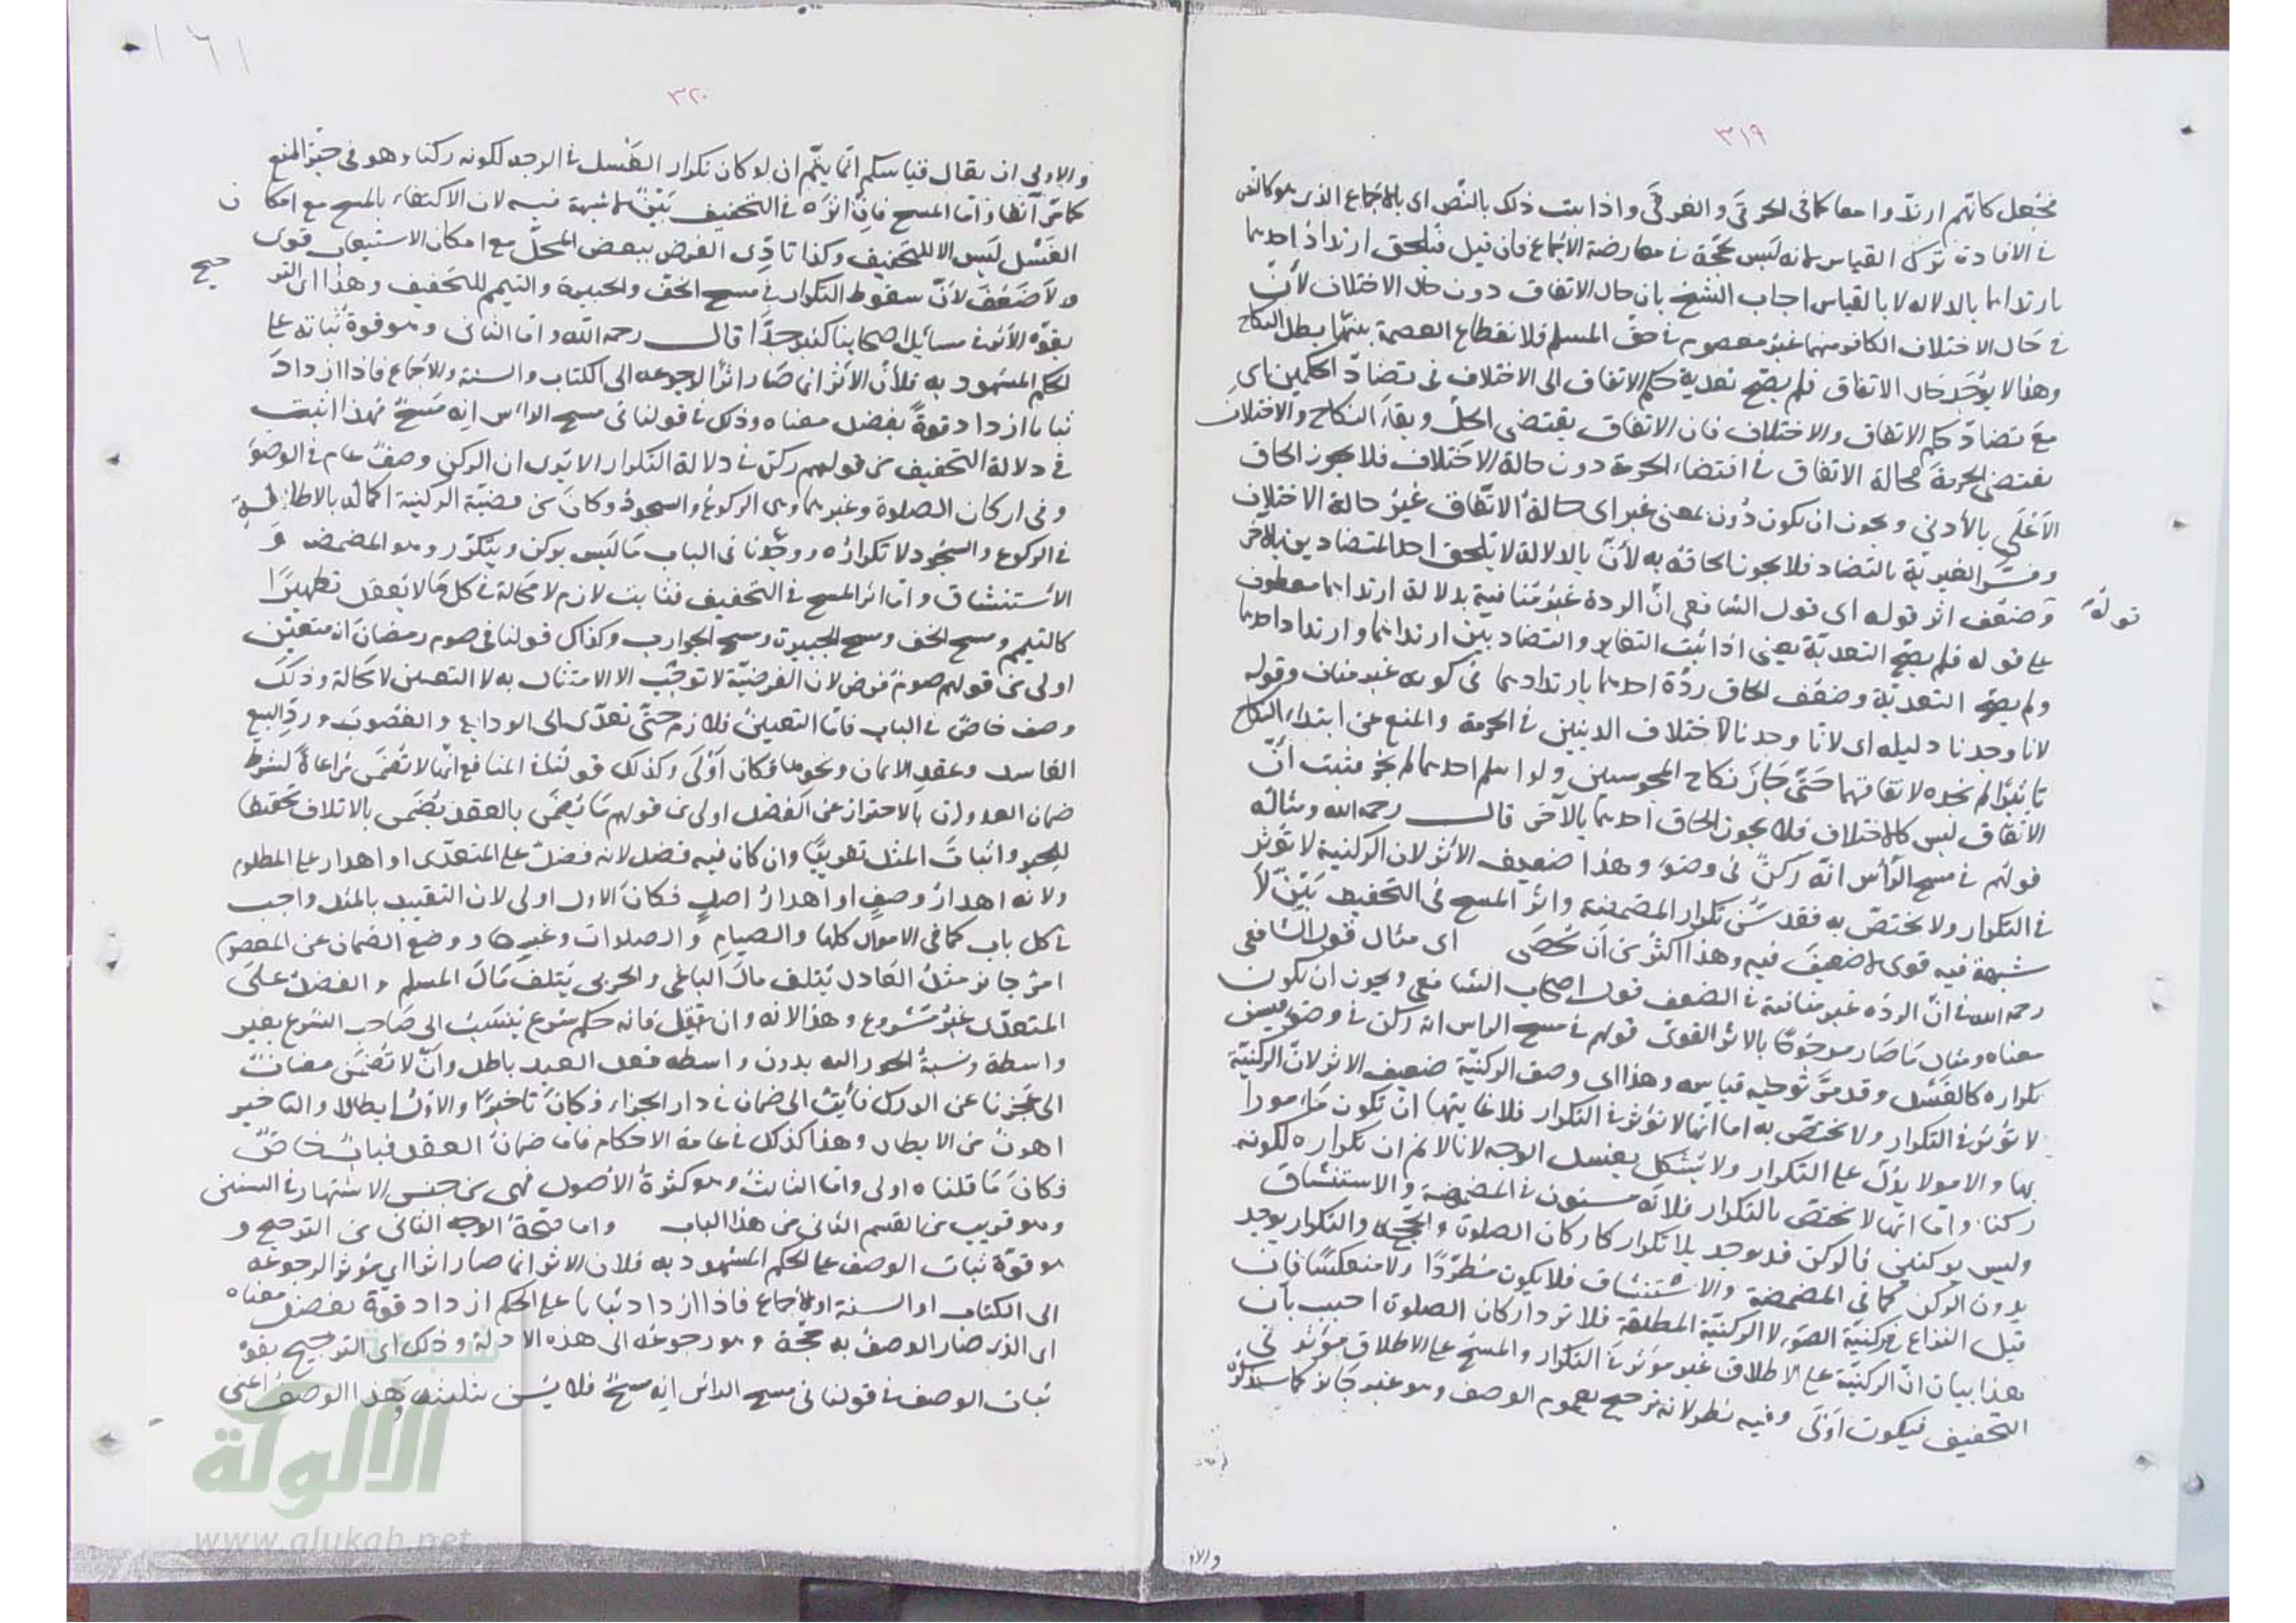 ٣١٩
فجعل كانهم ارتدوا معا كما فى الحرقى والغرقى واذا ثبت ذلك بالنص اى بالاجماع الذى هو كالنص
فى الافادة ترك القياس لانه ليس بحجة فى معارضة الاجماع فان قيل فيلحق ارتداد احدهما
بارتدادهما بالدلالة لا بالقياس اجاب الشيخ بان حال الاتفاق دون حال الاختلاف لأن
فى حال الاختلاف الكافر منهما غير معصوم فى حق المسلم فلانقطاع العصمة بينهما يبطل النكاح
وهذا لا يوجد حال الاتفاق فلم يصح تعدية حكم الاتفاق الى الاختلاف فى تضاد الحكمين اى
مع تضاد حكم الاتفاق والاختلاف فان الاتفاق يقتضى الحل وبقاء النكاح والاختلاف
يقتضى الحرمة فحالة الاتفاق فى اقتضاء الحرمة دون حالة الاختلاف فلا يجوز الحاق
الأعلى بالأدنى ويجوز ان يكون دون بمعنى غير اى حالة الاتفاق غير حالة الاختلاف
وفسر الغيرية بالتضاد فلا يجوز الحاقه به لأن بالدلالة لا يلحق احد المتضادين بالاخر
وضعف اثر قوله اى قول الشافعى ان الردة غير منافية بدلالة ارتدادهما معطوف
قوله
على قوله فلم يصح التعدية يعنى اذا ثبت التغاير والتضاد بين ارتدادهما وارتداد احدهما
ولم يصح التعدية وضعف الحاق ردة احدهما بارتدادهما فى كونه غير مناف وقوله
لانا وجدنا دليله اى لانا وجدنا لاختلاف الدينين فى الحرمة والمنع من ابتداء النكاح
تاثيرا لم نجده لاتفاقهما حتى جاز نكاح المجوسيين ولو اسلم احدهما لم يجز فثبت أن
الاتفاق ليس كالاختلاف فلا يجوز الحاق احدهما بالآخر قال رحمه الله ومثاله
قولهم فى مسح الرأس انه ركن فى وضوء وهذا ضعيف الأثر لان الركنية لا تؤثر
فى التكرار ولا يختص به فقد سن تكرار المضمضة واثر المسح فى التخفيف بين لا
شبهة فيه قوى لا ضعيف فيه وهذا اكثر من أن يحصى اى مثال قول الشافعى
رحمه الله فى ان الردة غير منافية فى الضعف قول اصحاب الشافعى ويجوز ان يكون
معناه ومثال ما صار مرجوحا بالاثر القوى قولهم فى مسح الراس انه ركن فى وضوء فيسن
تكراره كالغسل وقد مر توجيه قياسه وهذا اى وصف الركنية ضعيف الاثر لان الركنية
لا تؤثر فى التكرار ولا تختص به اما انها لا تؤثر فى التكرار فلا غايتها ان تكون مأمورا
بها والامر لا يدل على التكرار ولا يشكل بغسل الوجه لانا لا نم ان تكراره لكونه
ركنا واما انها لا تختص بالتكرار فلانه مسنون فى المضمضة والاستنشاق
وليس بركنين فالركن قد يوجد بلا تكرار كاركان الصلوة والحج والتكرار يوجد
بدون الركن كما فى المضمضة والاستنشاق فلا يكون مطردا ولا منعكسا فان
قيل النزاع فى ركنية الوضوء لا الركنية المطلقة فلا ترد اركان الصلوة اجيب بأن
هذا بيان ان الركنية على الاطلاق غير مؤثرة فى التكرار والمسح على الاطلاق مؤثر فى
التخفيف فيكون اولى وفيه نظر لانه ترجيح بعموم الوصف وهو غير جائز كما سنذكره
والاو
١٦١
٣٢٠
والاولى ان يقال قياسكم انما يتم ان لو كان تكرار الغسل فى الوجه لكونه ركنا وهو فى حيز المنع
كما مر آنفا واما المسح فان اثره فى التخفيف بين لا شبهة فيه لان الاكتفاء بالمسح مع امكان
الغسل ليس الا للتخفيف وكذا تادى الفرض ببعض المحل مع امكان الاستيعاب قوى
لا ضعف لأن سقوط التكرار فى مسح الخف والجبيرة والتيمم للتخفيف وهذا اى الترجيح
بقوة الأثر فى مسائل اصحابنا كثير جدا قال رحمه الله واما الثانى وهو قوة ثباته على
الحكم المشهود به فلأن الأثر انما صار اثرا لرجوعه الى الكتاب والسنة والاجماع فاذا ازداد
ثباتا ازداد قوة بفضل معناه وذلك فى قولنا فى مسح الراس انه مسح فهذا اثبت
فى دلالة التخفيف من قولهم ركن فى دلالة التكرار الا ترى ان الركن وصف عام فى الوضوء
وفى اركان الصلوة وغيرهما وهى الركوع والسجود وكان من قضية الركنية اكماله بالاطالة
فى الركوع والسجود لا تكراره ووجدنا فى الباب ما ليس بركن ويتكرر وهو المضمضة و
الاستنشاق واما اثر المسح فى التخفيف فثابت لازم لا محالة فى كل ما لا يعقل تطهيرا
كالتيمم ومسح الخف ومسح الجبيرة ومسح الجوارب وكذلك قولنا فى صوم رمضان انه متعين
اولى من قولهم صوم فرض لان الفرضية لا توجب الا الامتثال به لا التعيين لا محالة وذلك
وصف خاص فى الباب فاما التعيين فلازم حتى تعدى الى الودائع والغصوب ورد البيع
الفاسد وعقد الايمان ونحوها فكان أولى وكذلك قولنا فى المنافع انها لا تضمن مراعاة لشرط
ضمان العدوان بالاحتراز عن الفضل اولى من قولهم ما يضمن بالعقد يضمن بالاتلاف تحقيقا
للجبر واثبات المثل تقريبا وان كان فيه فضل لانه فضل على المتعدى او اهدار على المظلوم
ولانه اهدار وصف او اهدار اصل فكان الاول اولى لان التقييد بالمثل واجب
فى كل باب كما فى الاموال كلها والصيام والصلوات وغيرها ووضع الضمان عن المعصوم
امر جائز مثل العادل يتلف مال الباغى والحربى يتلف مال المسلم والفضل على
المتعدى غير مشروع وهذا لانه وان قل فانه حكم شرع ينسب الى صاحب الشرع بغير
واسطة ونسبة الجور اليه بدون واسطه فعل العبد باطل وأن لا تضمن مضاف
الى عجزنا عن الدرك فأيت الى ضمان فى دار الجزاء فكان تاخيرا والاول ابطالا والتاخير
اهون من الابطال وهذا كذلك فى عامة الاحكام فاما ضمان العقد فباب خاص
فكان ما قلناه اولى واما الثالث وهو كثرة الأصول فهى من جنس الاشتهار فى السنن
وهو قريب من القسم الثانى من هذا الباب واما صحة الوجه الثانى من الترجيح و
هو قوة ثبات الوصف على الحكم المشهود به فلان الاثر انما صار اثرا اى مؤثرا لرجوعه
الى الكتاب او السنة او الاجماع فاذا ازداد ثباتا على الحكم ازداد قوة بفضل معناه
اى الذى صار الوصف به حجة وهو رجوعه الى هذه الادلة وذلك اى الترجيح بقوة
ثبات الوصف فى قولنا فى مسح الراس انه مسح فلا يسن تثليثه وهذا الوصف اعنى
شبكة
الألوكة
www.alukah.net